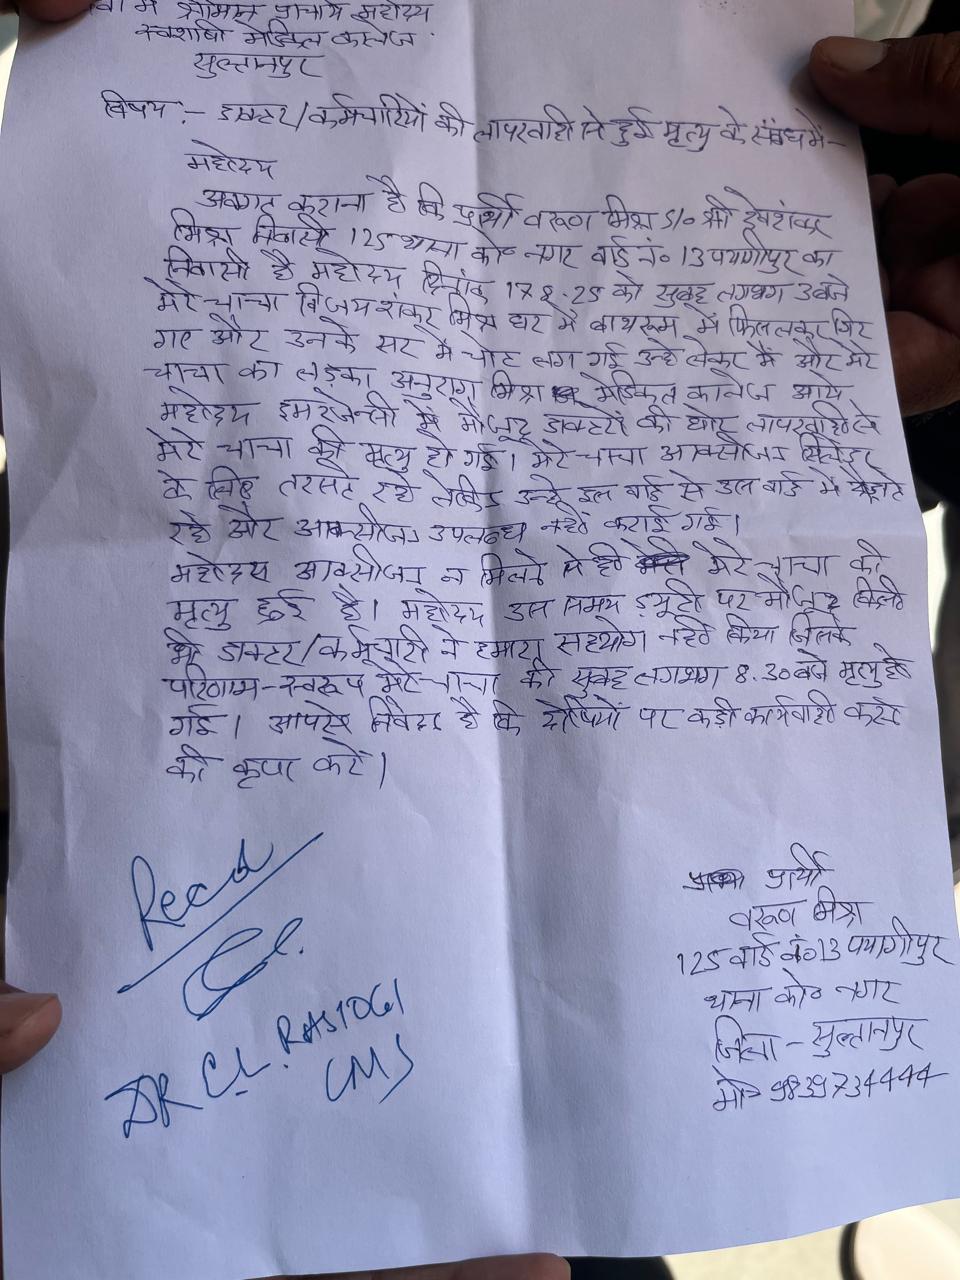 श्रीमान प्राचार्य महोदय
स्वशासी मेडिकल कालेज
सुल्तानपुर
विषय :- डाक्टर/कर्मचारियों की लापरवाही से हुई मृत्यु के संबंध में -
महोदय
अवगत कराना है कि प्रार्थी वरूण मिश्र S/o श्री
मिश्र निवासी 125 थाना को० नगर वार्ड नं० 13 पयागीपुर का
निवासी है महोदय दिनांक 17.8.25 को सुबह लगभग 3 बजे
मेरे चाचा विजय शंकर मिश्र घर में बाथरूम में फिसलकर गिर
गए और उनके सर में चोट लग गई उन्हे लेकर मैं और मेरे
चाचा का लड़का अनुराग मिश्र मेडिकल कालेज आये
महोदय इमरजेन्सी में मौजूद डाक्टरों की घोर लापरवाही से
मेरे चाचा की मृत्यु हो गई। मेरे चाचा आक्सीजन सिलेंडर
के लिए तरसते रहे लेकिन उन्हे इस वार्ड से उस वार्ड में
रहे और आक्सीजन उपलब्ध नहीं कराई गई।
महोदय आक्सीजन न मिलने से ही मेरे चाचा की
मृत्यु हुई है। महोदय उस समय ड्यूटी पर मौजूद किसी
भी डाक्टर/कर्मचारी ने हमारा सहयोग नहीं किया जिसके
परिणाम-स्वरूप मेरे चाचा की सुबह लगभग 8.30 बजे मृत्यु हो
गई। आपसे निवेदन है कि दोषियों पर कड़ी कार्यवाही करने
की कृपा करें।
प्रार्थी
वरूण मिश्र
125 वार्ड नं० 13 पयागीपुर
थाना को० नगर
जिला - सुल्तानपुर
मो० 9839734444
Recd
DR C.L. RASTOGI
CMS